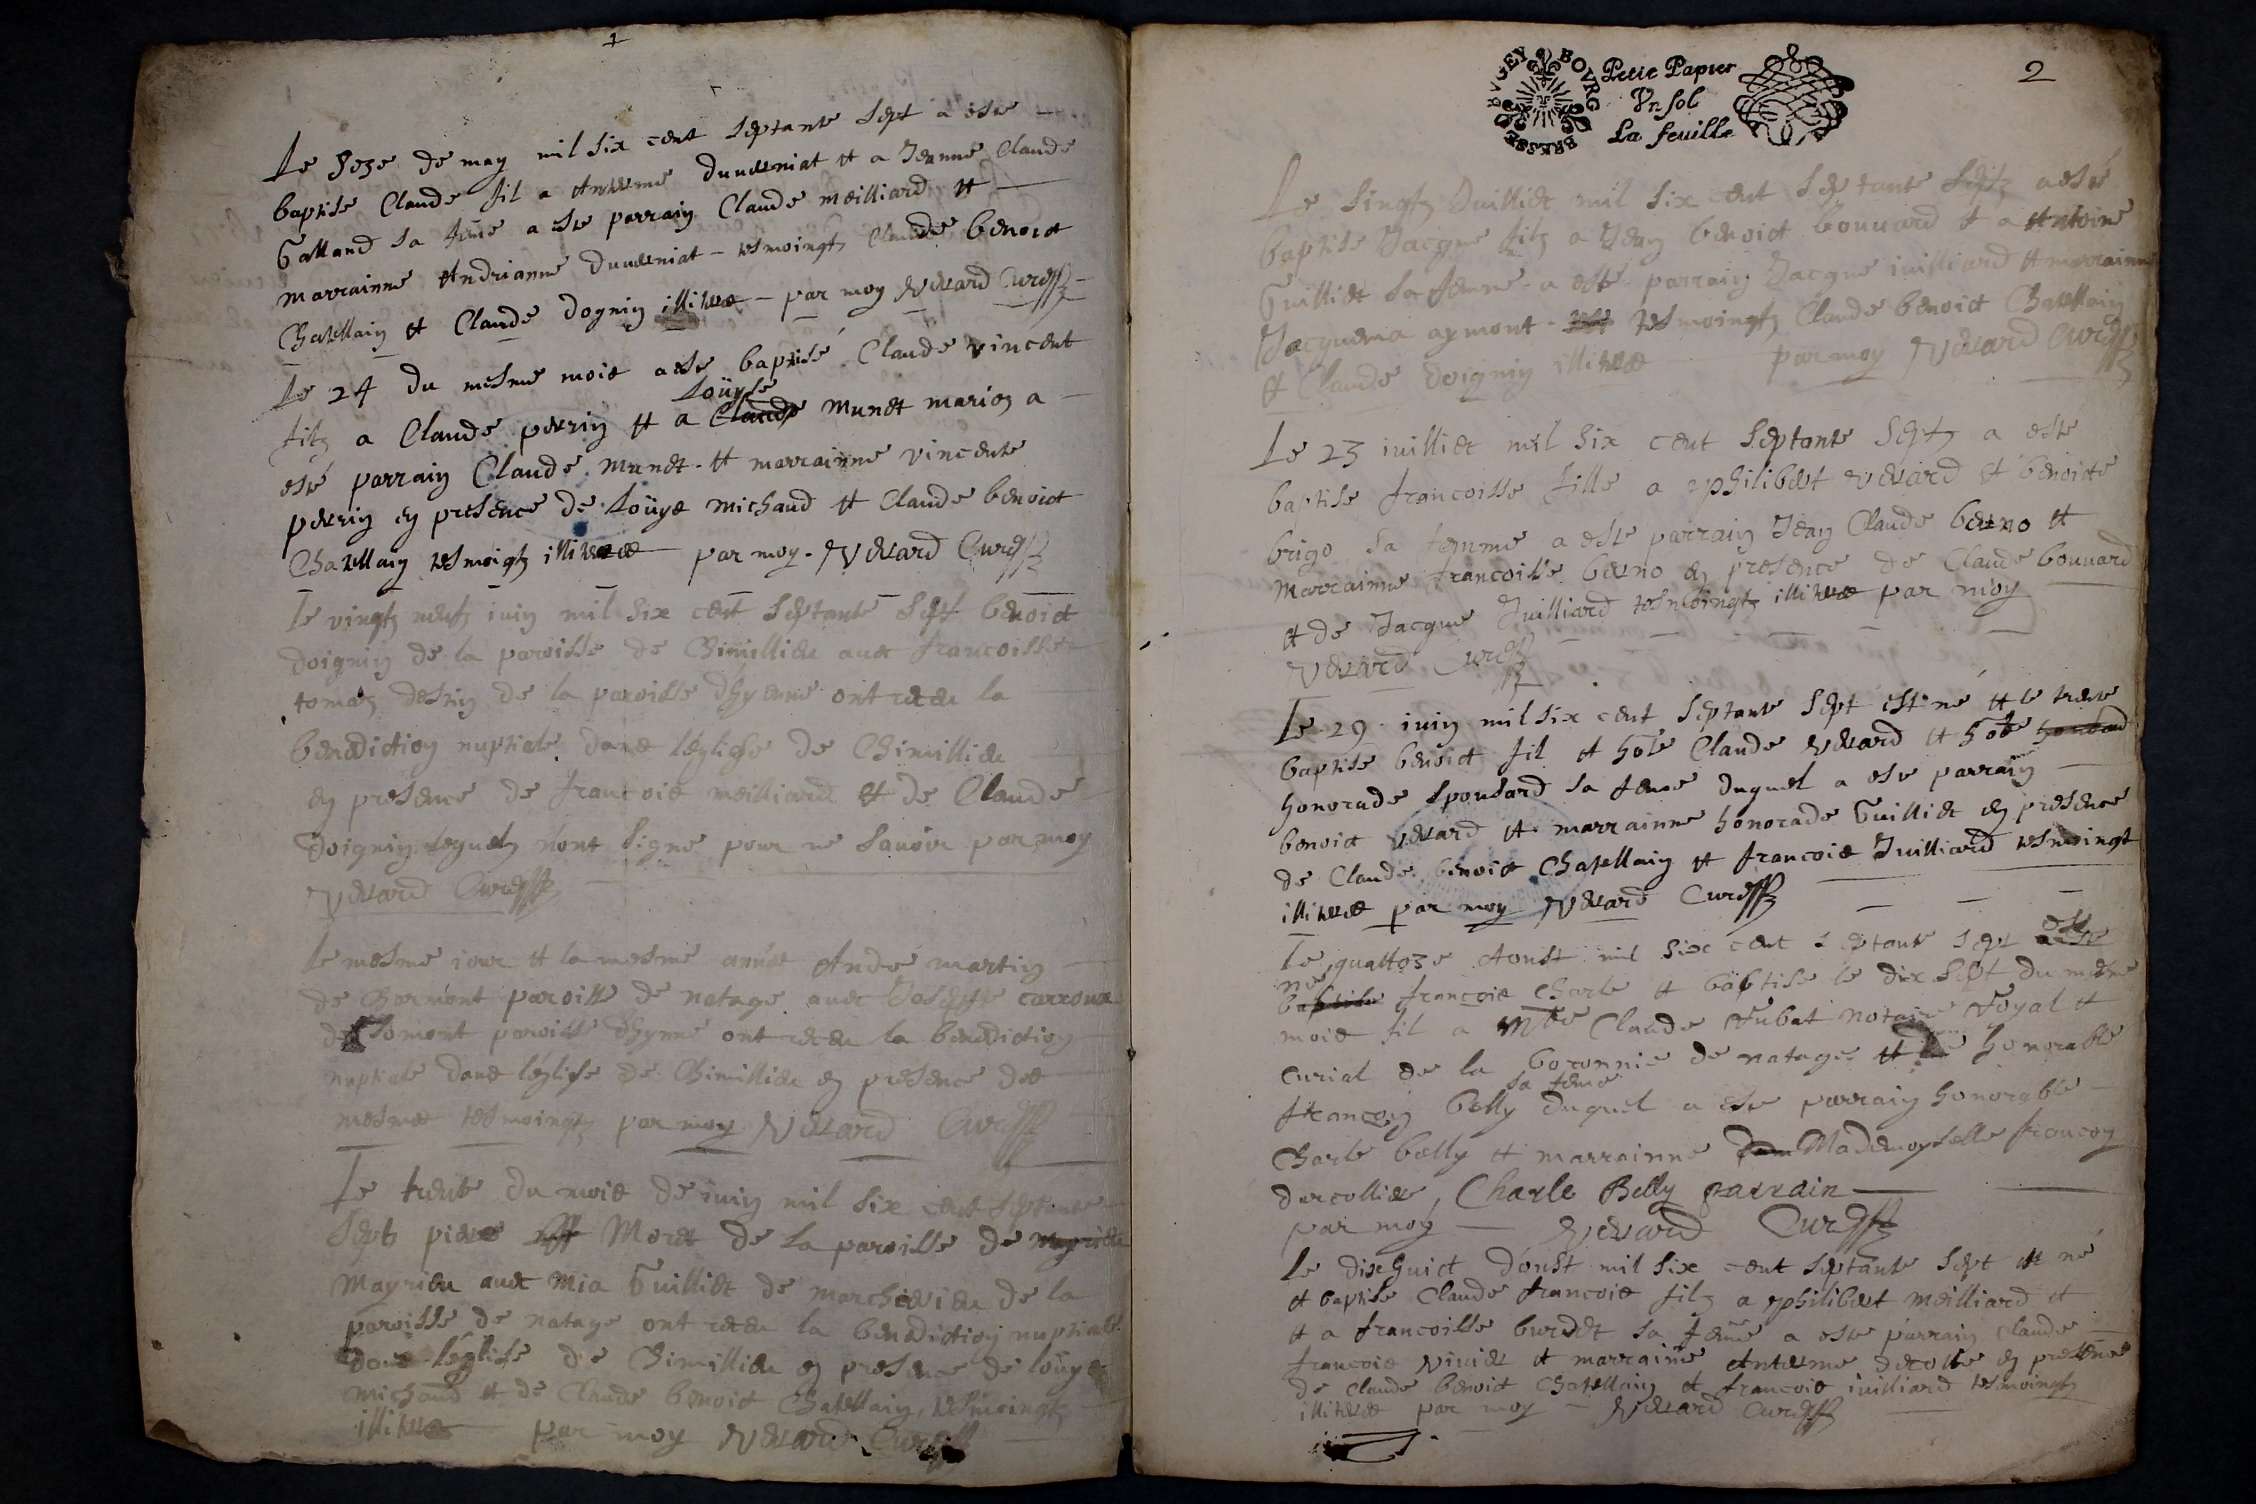 1
Le seze de may mil six cent septante sept a este
baptise Claude fil a Anterme Duuerniat et a Jeanne Claude
Galland sa feme a este parrain Claude meilliard et
marrainne Andrianne Duuerniat - tesmoingtz Claude benoict
Chatellain et Claude Dognin illiteres - par moy Veuard Curé
Le 24 du mesme mois a este baptisé Claude vincent
Loüyse
filz a Claude perrin et a Claude munet marioz a
esté parrain Claude munet - et marrainne vincente
perrin en presence de Loüys michaud et Claude benoict
Chatellain tesmoigtz illiteres par moy - Veuard Curé
Le vingtz neufz iuin mil six cent septante sept benoict
Doignin de la paroisse de Chimillieu auec francoisse
de la paroisse dhyenne ont receu la
benediction nuptiale dans léglise de Chimillieu
en presence de francois meilliard et de Claude
Doignin lequelz nont signe pour ne sauoir par moy
Veuard Curé
Le mesme iour et la mesme année André martin
de Charmont paroisse de natage auec Josepte carroux
de Somont paroisse dhynne ont receu la benediction
nuptiale dans léglise de Chimillieu en presence des
mesmes tesmoingtz par moy Veuard Curé
Le trente du mois de iuin mil six cent septante
septz piere Moret de la paroisse de
Mayrieu auec Mia Guilliet de marchevieu de la
paroisse de natage ont receu la benediction nuptiale
dans léglise de Chimillieu en presence de loüys
michaud et de Claude benoict Chatellain, tesmoingtz
illiteres par moy Veuard Curé
BVGEY BOVRG BRESSE
Petit Papier
Vn sol
La feuille
2
Le singtz Juilliet mil six cent septante septz a esté
baptise Jacque filz a Jean benoict bouuard et a Antoine
Guilliet sa femme - a esté parrain Jacque iuilliard et marrainne
Jacquema aymont - tesmoingtz Claude benoict Chatellain
et Claude Doignin illiteres par moy Veuard Curé
Le 23 iuilliet mil six cent septante septz a este
baptise francoisse fille a philibert Veuard et benoicte
brigo sa femme a este parrain Jean Claude berno et
marrainne francoisse berno en presence de Claude bouuard
et de Jacque Juilliard tesmoingtz illiteres par moy
Veuard Curé
Le 29 iuin mil six cent septante sept est né et le trente
baptise benoict fil et hole Claude Veuard et hole
honorade spousard sa feme duquel a este parrain
benoict Veuard et marrainne honorade Guilliet en presence
de Claude benoict Chatellain et francois Juilliard tesmoingt
illiteres par moy Veuard Curé
este
Le quattoze Aoust mil six cent septante sept
né
baptise francois Charle et baptise le dix sept du mesme
mois fil a Mtre Claude Aubat notaire Royal et
Curial de la boronnie de natage et honorable
sa feme
francoiz belly duquel a este parrain honorable
Charle belly et marrainne Mademoyselle francoy
darcollieres, Charle Belly parrain
par moy Veuard Curé
Le dixhuict d'oust mil six cent septante sept et né
et baptise Claude francois filz a philibert meilliard et
et a francoisse burdet sa feme a este parrain Claude
francois Viuier et marrainne Anterme en presence
de Claude benoict Chatellain et francois iuilliard tesmoingtz
illiteres par moy - Veuard Curé